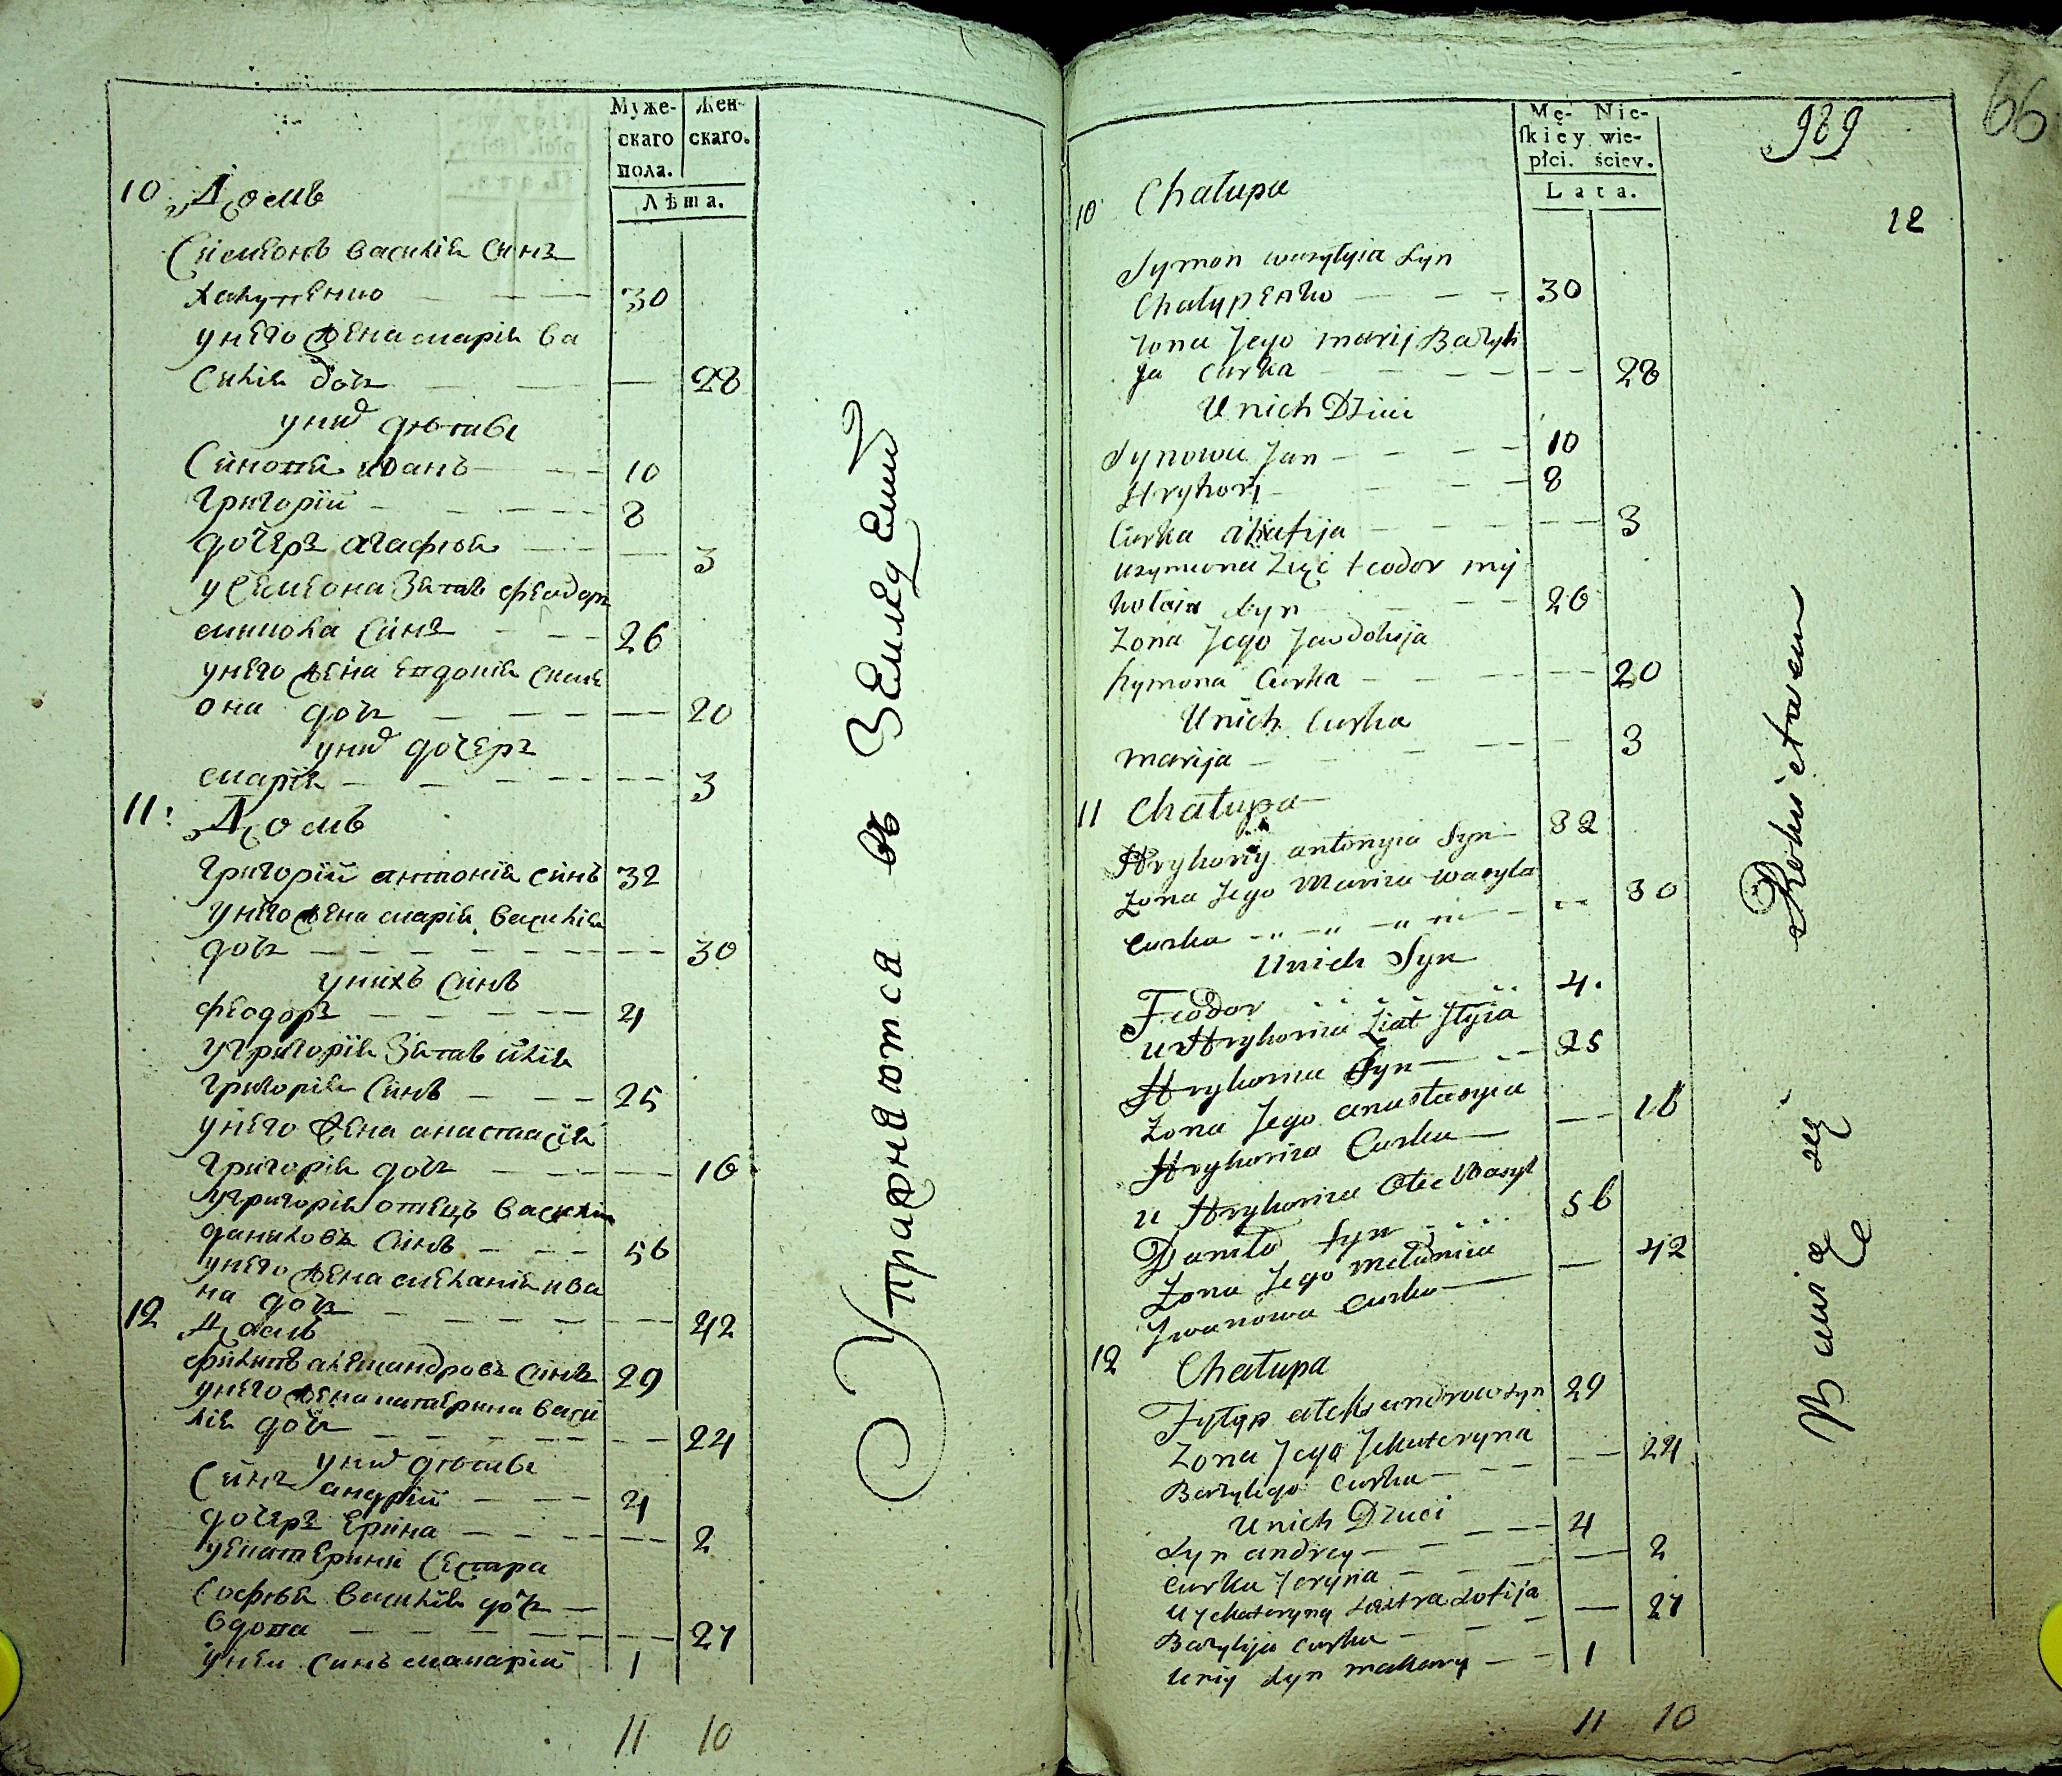 Муже- Жен-
скаго скаго.
пола.
Лѣта.
10 Домъ
Симеонъ василія синъ
халупенко — — — 30
унего жена марія ва
силія дочъ — — — 28
уних дѣтиве
Синовя иванъ — — 10
григорій — — — 8
дочеръ агафія — — — 3
у Семеона зятъ феодоръ
миколи синъ — — 26
унего жена евдокія симе
она дочъ — — — 20
уних дочеръ
марія — — — 3
11: Домъ
григорій антонія синъ 32
унего жена марія василія
дочъ — — — 30
унихъ синъ
феодоръ — — — 4
угригорія зятъ илія
григорія синъ — — — 25
унего жена анастасія
григорія дочъ — — — 16
угригорія отецъ василій
даниловъ синъ — — — 56
унего жена меланія ива
на дочъ — — — 42
12 Домъ
филипъ александровъ синъ 29
унего жена катерина васи
лія дочъ — — — 24
уних дѣтиве
Синъ андрій — — — 4
дочеръ ерина — — — 2
укатерини сестра
Софія василія дочъ —
вдова — — — 27
унеи синъ макарій 1
11 10
Упражняются въ Земледеліи
Mę- Nie-
skiey wie-
płci. ściey.
Lata.
989
66
12
10 Chałupa
Symon wasylyia syn
Chałypenko — — — 30
zona Jego marij Bazyli
ja curka — — — 28
Unich Dzieci
Synowie Jan — — — 10
Hryhory — — — 8
Curka ahafija — — — 3
uzymona Zięć teodor my
kołaia syn — — — 26
zona Jego Jawdokija
symona Curka — — — 20
Unich Curka
marija — — — 3
11 Chałupa
Hryhoriy antonyia Syn 32
zona Jego Mariia wasyla
curka — „ — „ — 30
Unich Syn
Feodor 4.
u Hryhoriia Ziat Ilyia
Hryhoriia Syn — 25
zona Jego anastasyia
Hryhoriia Curka — 16
u Hryhoriia Otec Wasyl
Daniło syn 56
zona Jego Melaniia
Iwanowa curka — 42
12 Chałupa
Fyłyp aleksandrow syn 29
zona Jego Jekateryna
Bazylego curka — — 24
Unich Dzieci
syn andrey — — — 4
curka Jeryna — — 2
u Jekateryny siostra Zofija
Bazylija curka — — 27
uniy syn makary — — 1
11 10
Bawią się Rolnictwem